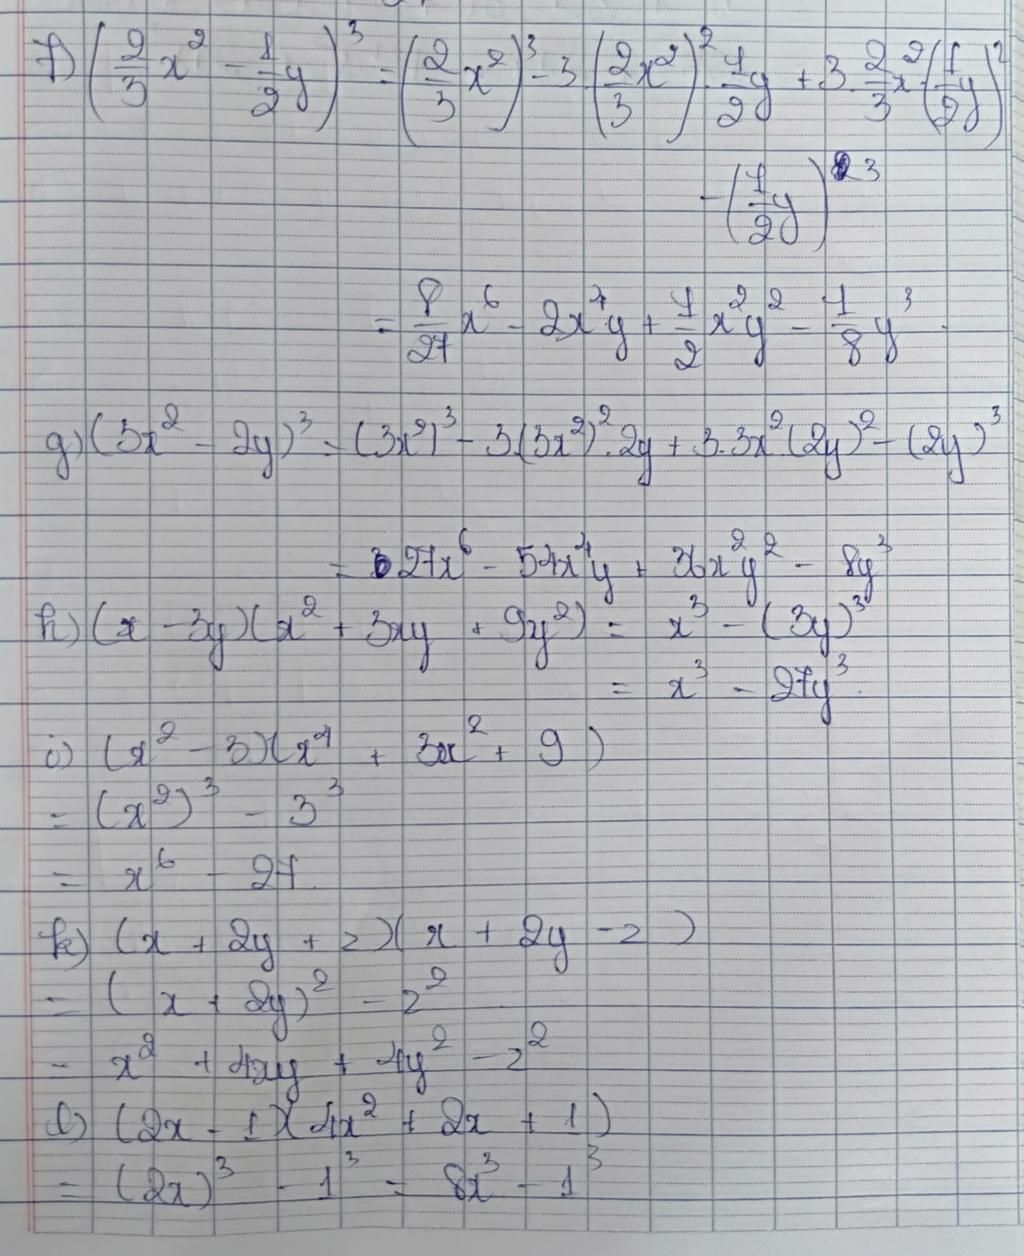 f) (2/3 x² - 1/2 y)³ = (2/3 x²)³ - 3 (2/3 x²)² . 1/2 y + 3 . 2/3 x² (1/2 y)²
- (1/2 y)³
= 8/27 x⁶ - 2x⁴y + 1/2 x²y² - 1/8 y³.
g) (3x² - 2y)³ = (3x²)³ - 3.(3x²)².2y + 3.3x²(2y)² - (2y)³
= 27x⁶ - 54x⁴y + 36x²y² - 8y³
h) (x - 3y)(x² + 3xy + 9y²) = x³ - (3y)³
= x³ - 27y³.
i) (x² - 3)(x⁴ + 3x² + 9)
= (x²)³ - 3³
= x⁶ - 27.
k) (x + 2y + z)(x + 2y - z)
= (x + 2y)² - z²
= x² + 4xy + 4y² - z²
l) (2x - 1)(4x² + 2x + 1)
= (2x)³ - 1³ = 8x³ - 1³